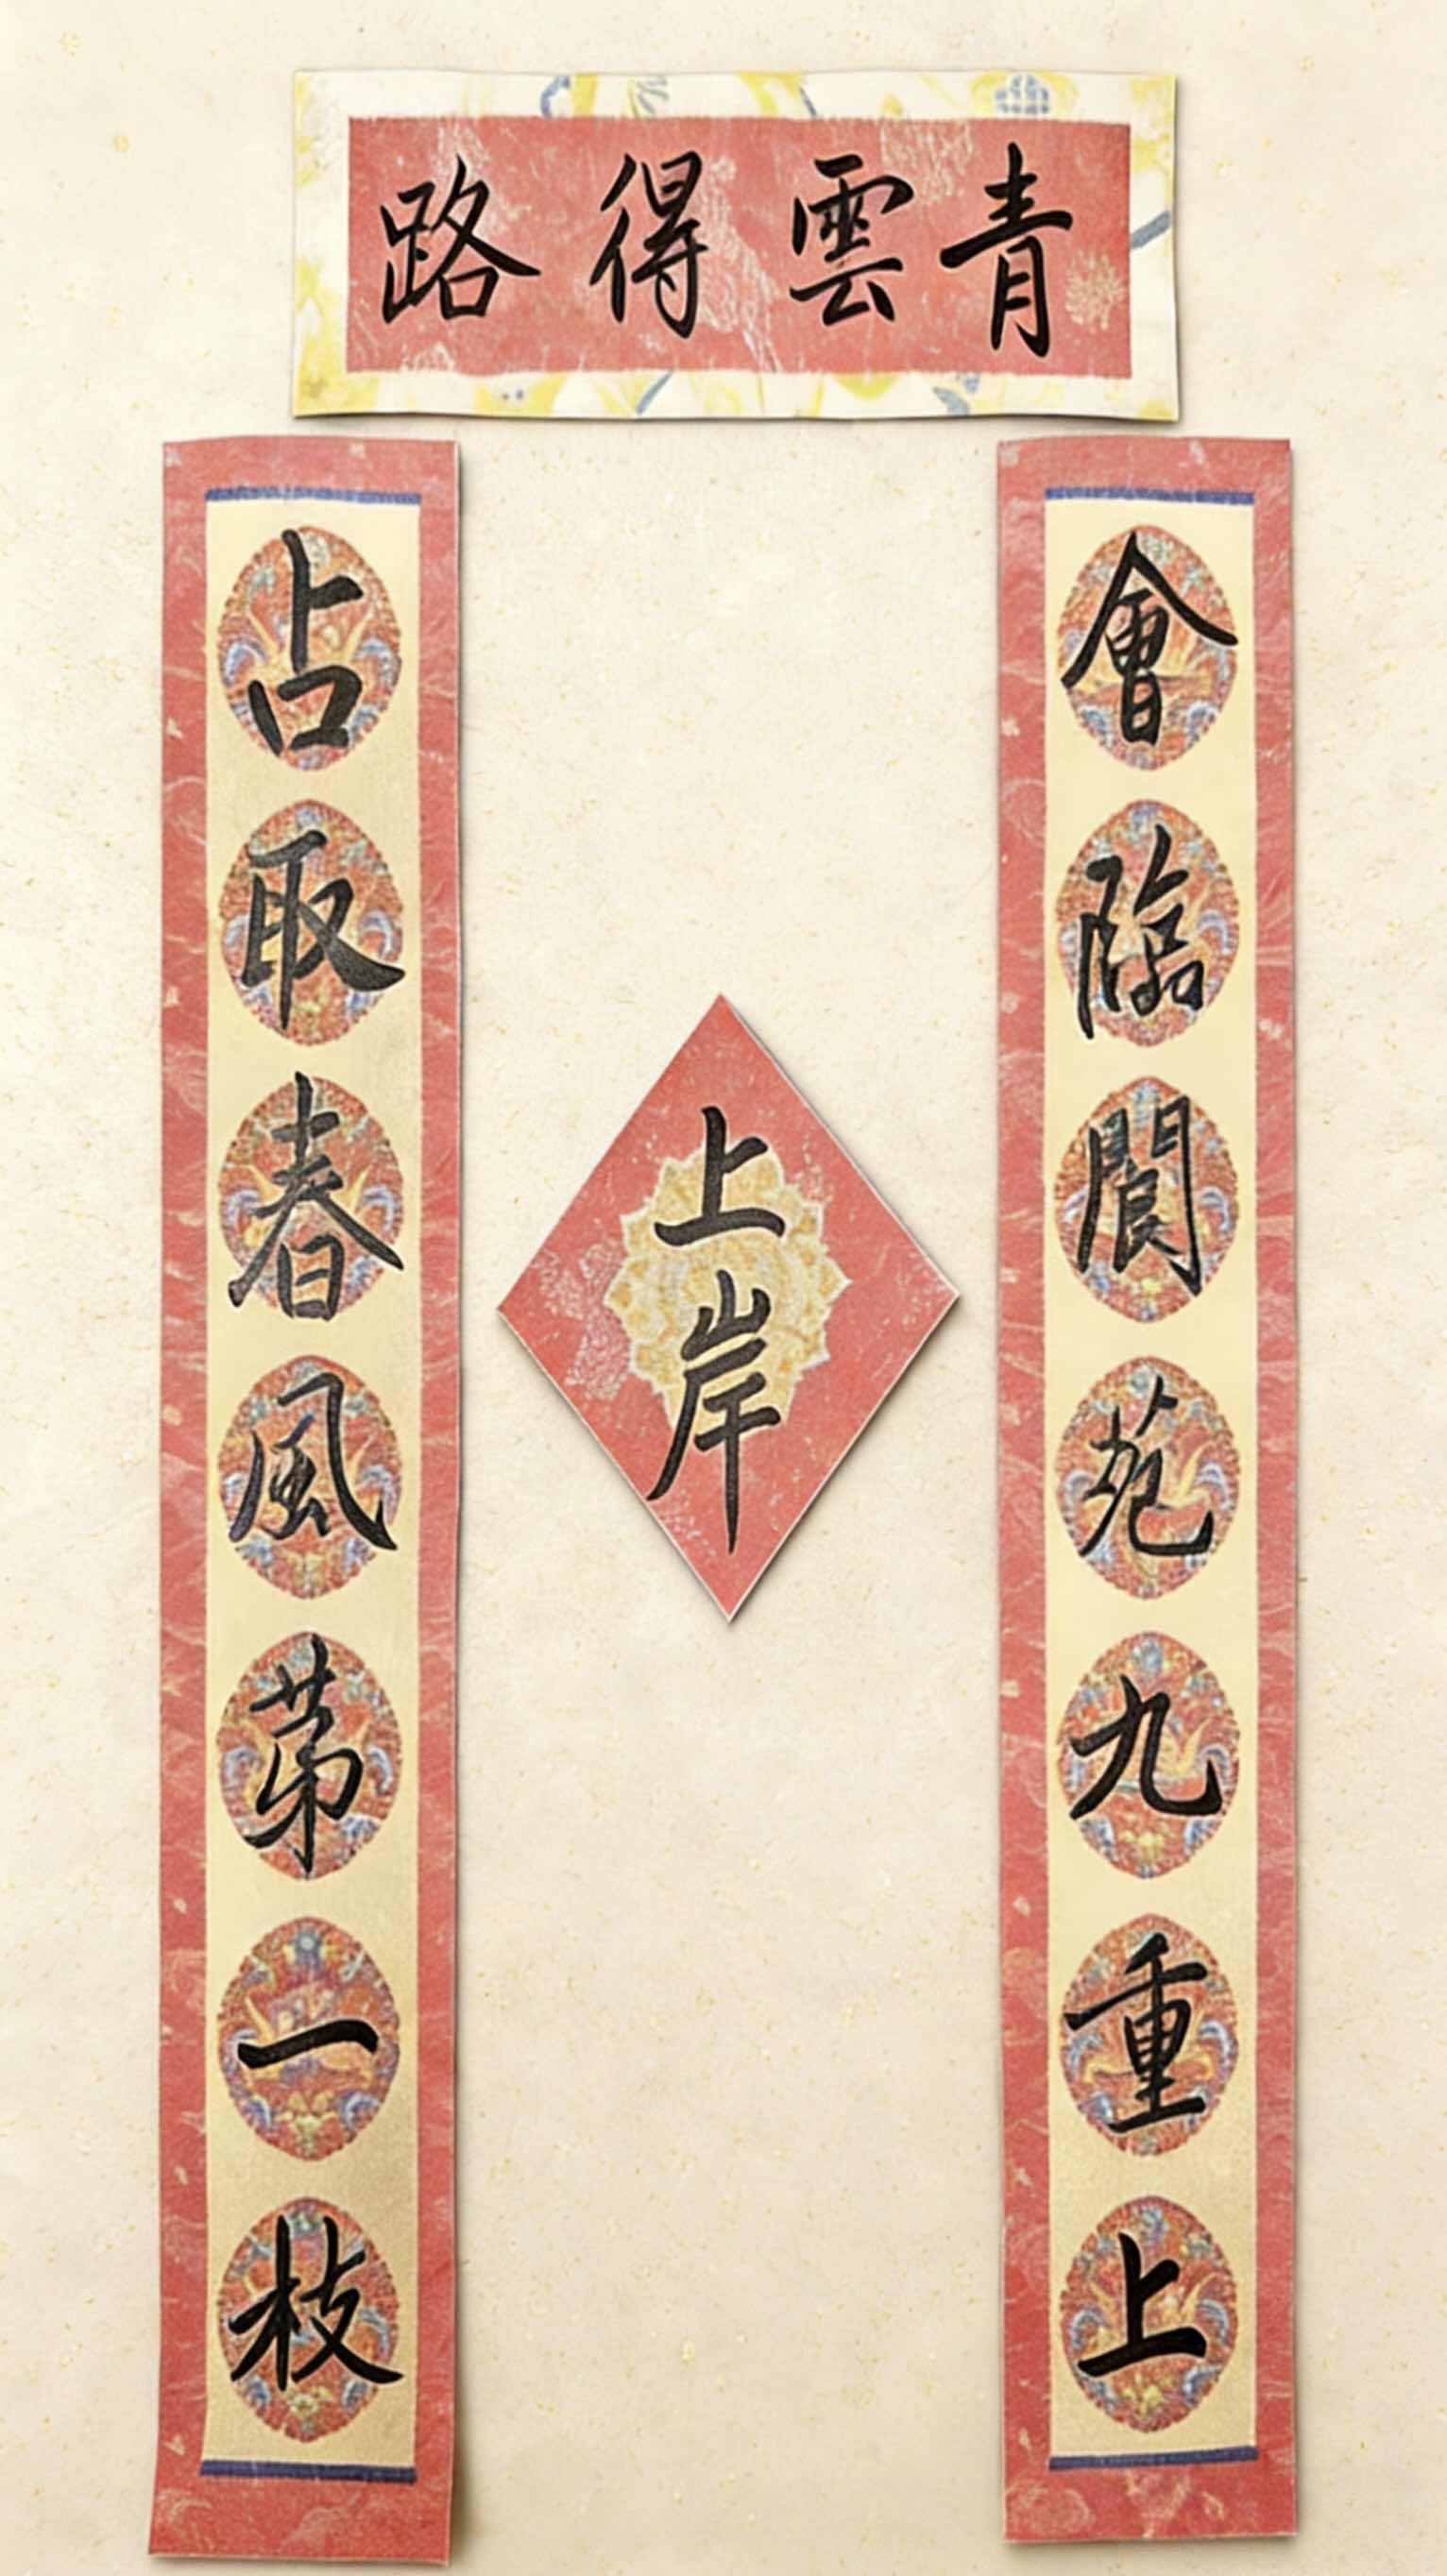 青雲得路
會臨閬苑九重上
占取春風苐一枝
上岸